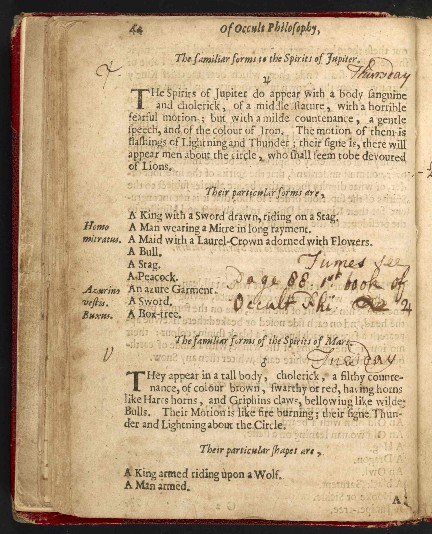 54 Of Occult Philosophy,
The familiar forms to the Spirits of Jupiter.
♃ Thursday
THe Spirits of Jupiter do appear with a body sanguine
and cholerick, of a middle stature, with a horrible
fearful motion; but with a milde countenance, a gentle
speech, and of the colour of Iron. The motion of them is
flashings of Lightning and Thunder; their signe is, there will
appear men about the circle, who shall seem to be devoured
of Lions.
Their particular forms are,
A King with a Sword drawn, riding on a Stag.
Homo A Man wearing a Mitre in long rayment.
mitratus. A Maid with a Laurel-Crown adorned with Flowers.
A Bull.
A Stag. Fumes see
A Peacock. Page 88 1st book of
Azurina An azure Garment. Occult Phi. 
vestis. A Sword. ♃
Buxus. A Box-tree.
The familiar forms of the Spirits of Mars.
♂ Tuesday
THey appear in a tall body, cholerick, a filthy counte-
nance, of colour brown, swarthy or red, having horns
like Harts horns, and Griphins claws, bellowing like wilde
Bulls. Their Motion is like fire burning; their signe Thun-
der and Lightning about the Circle.
Their particular shapes are,
A King armed riding upon a Wolf.
A Man armed.
A